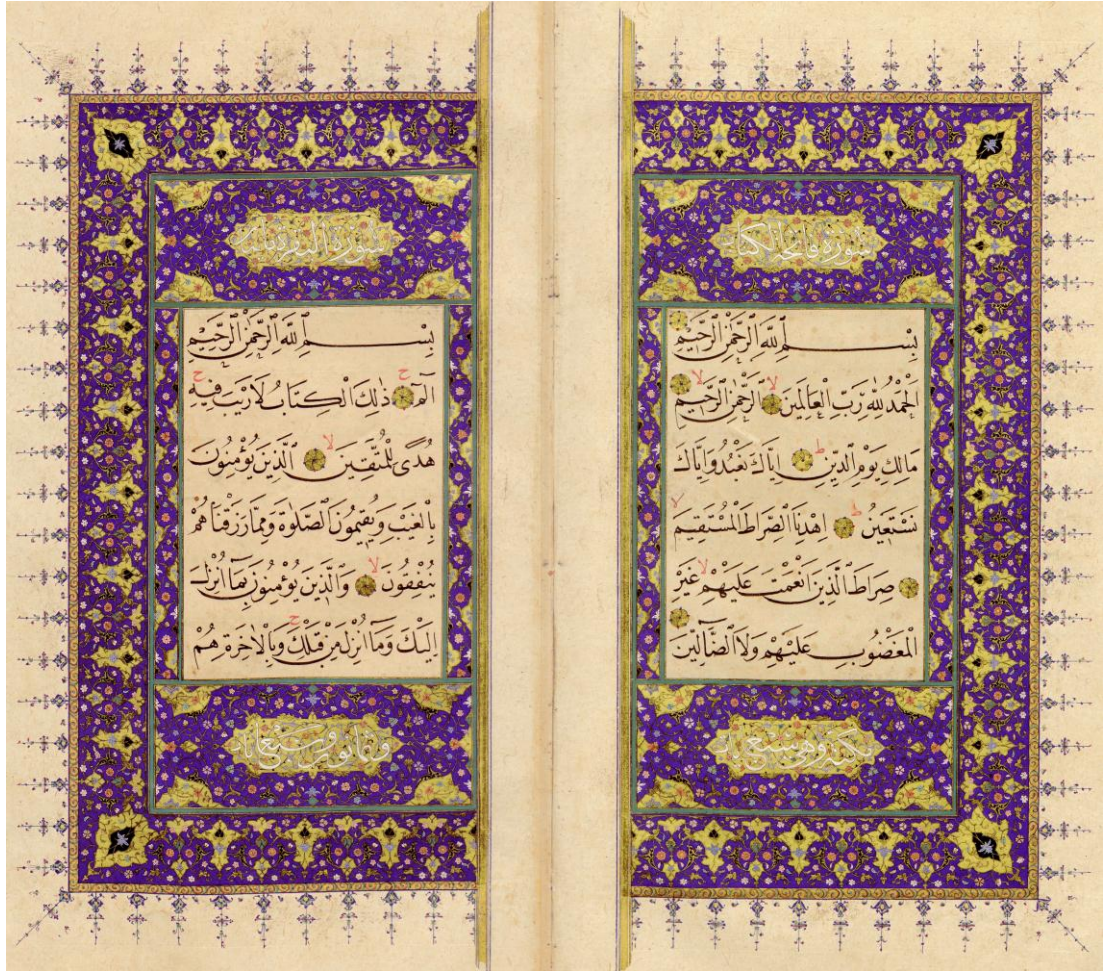 سورة فاتحة الكتاب
بِسْمِ ٱللَّهِ ٱلرَّحْمٰنِ ٱلرَّحِيْمِ
اَلْحَمْدُ لِلّٰهِ رَبِّ الْعَالَمِينَ لا اَلرَّحْمٰنِ ٱلرَّحِيْمِ لا
مَالِكِ يَوْمِ ٱلدِّيْنِ ط اِيَّاكَ نَعْبُدُ وَاِيَّاكَ
نَسْتَعِيْنُ ط اِهْدِنَا ٱلصِّرَاطَ الْمُسْتَقِيْمَ لا
صِرَاطَ ٱلَّذِيْنَ اَنْعَمْتَ عَلَيْهِمْ لا غَيْرِ
الْمَغْضُوبِ عَلَيْهِمْ وَلَا ٱلضَّآلِّيْنَ
مكية وهي سبع ايات
سورة البقرة
بِسْمِ ٱللَّهِ ٱلرَّحْمٰنِ ٱلرَّحِيْمِ
الٓمٓ ج ذٰلِكَ الْكِتَابُ لَا رَيْبَ فِيْهِ ج
هُدًى لِلْمُتَّقِيْنَ لا اَلَّذِيْنَ يُؤْمِنُوْنَ
بِالْغَيْبِ وَيُقِيْمُوْنَ ٱلصَّلٰوةَ وَمِمَّا رَزَقْنَاهُمْ
يُنْفِقُوْنَ لا وَٱلَّذِيْنَ يُؤْمِنُوْنَ بِمَٓا اُنْزِلَ
اِلَيْكَ وَمَٓا اُنْزِلَ مِنْ قَبْلِكَ ج وَبِالْاٰخِرَةِ هُمْ